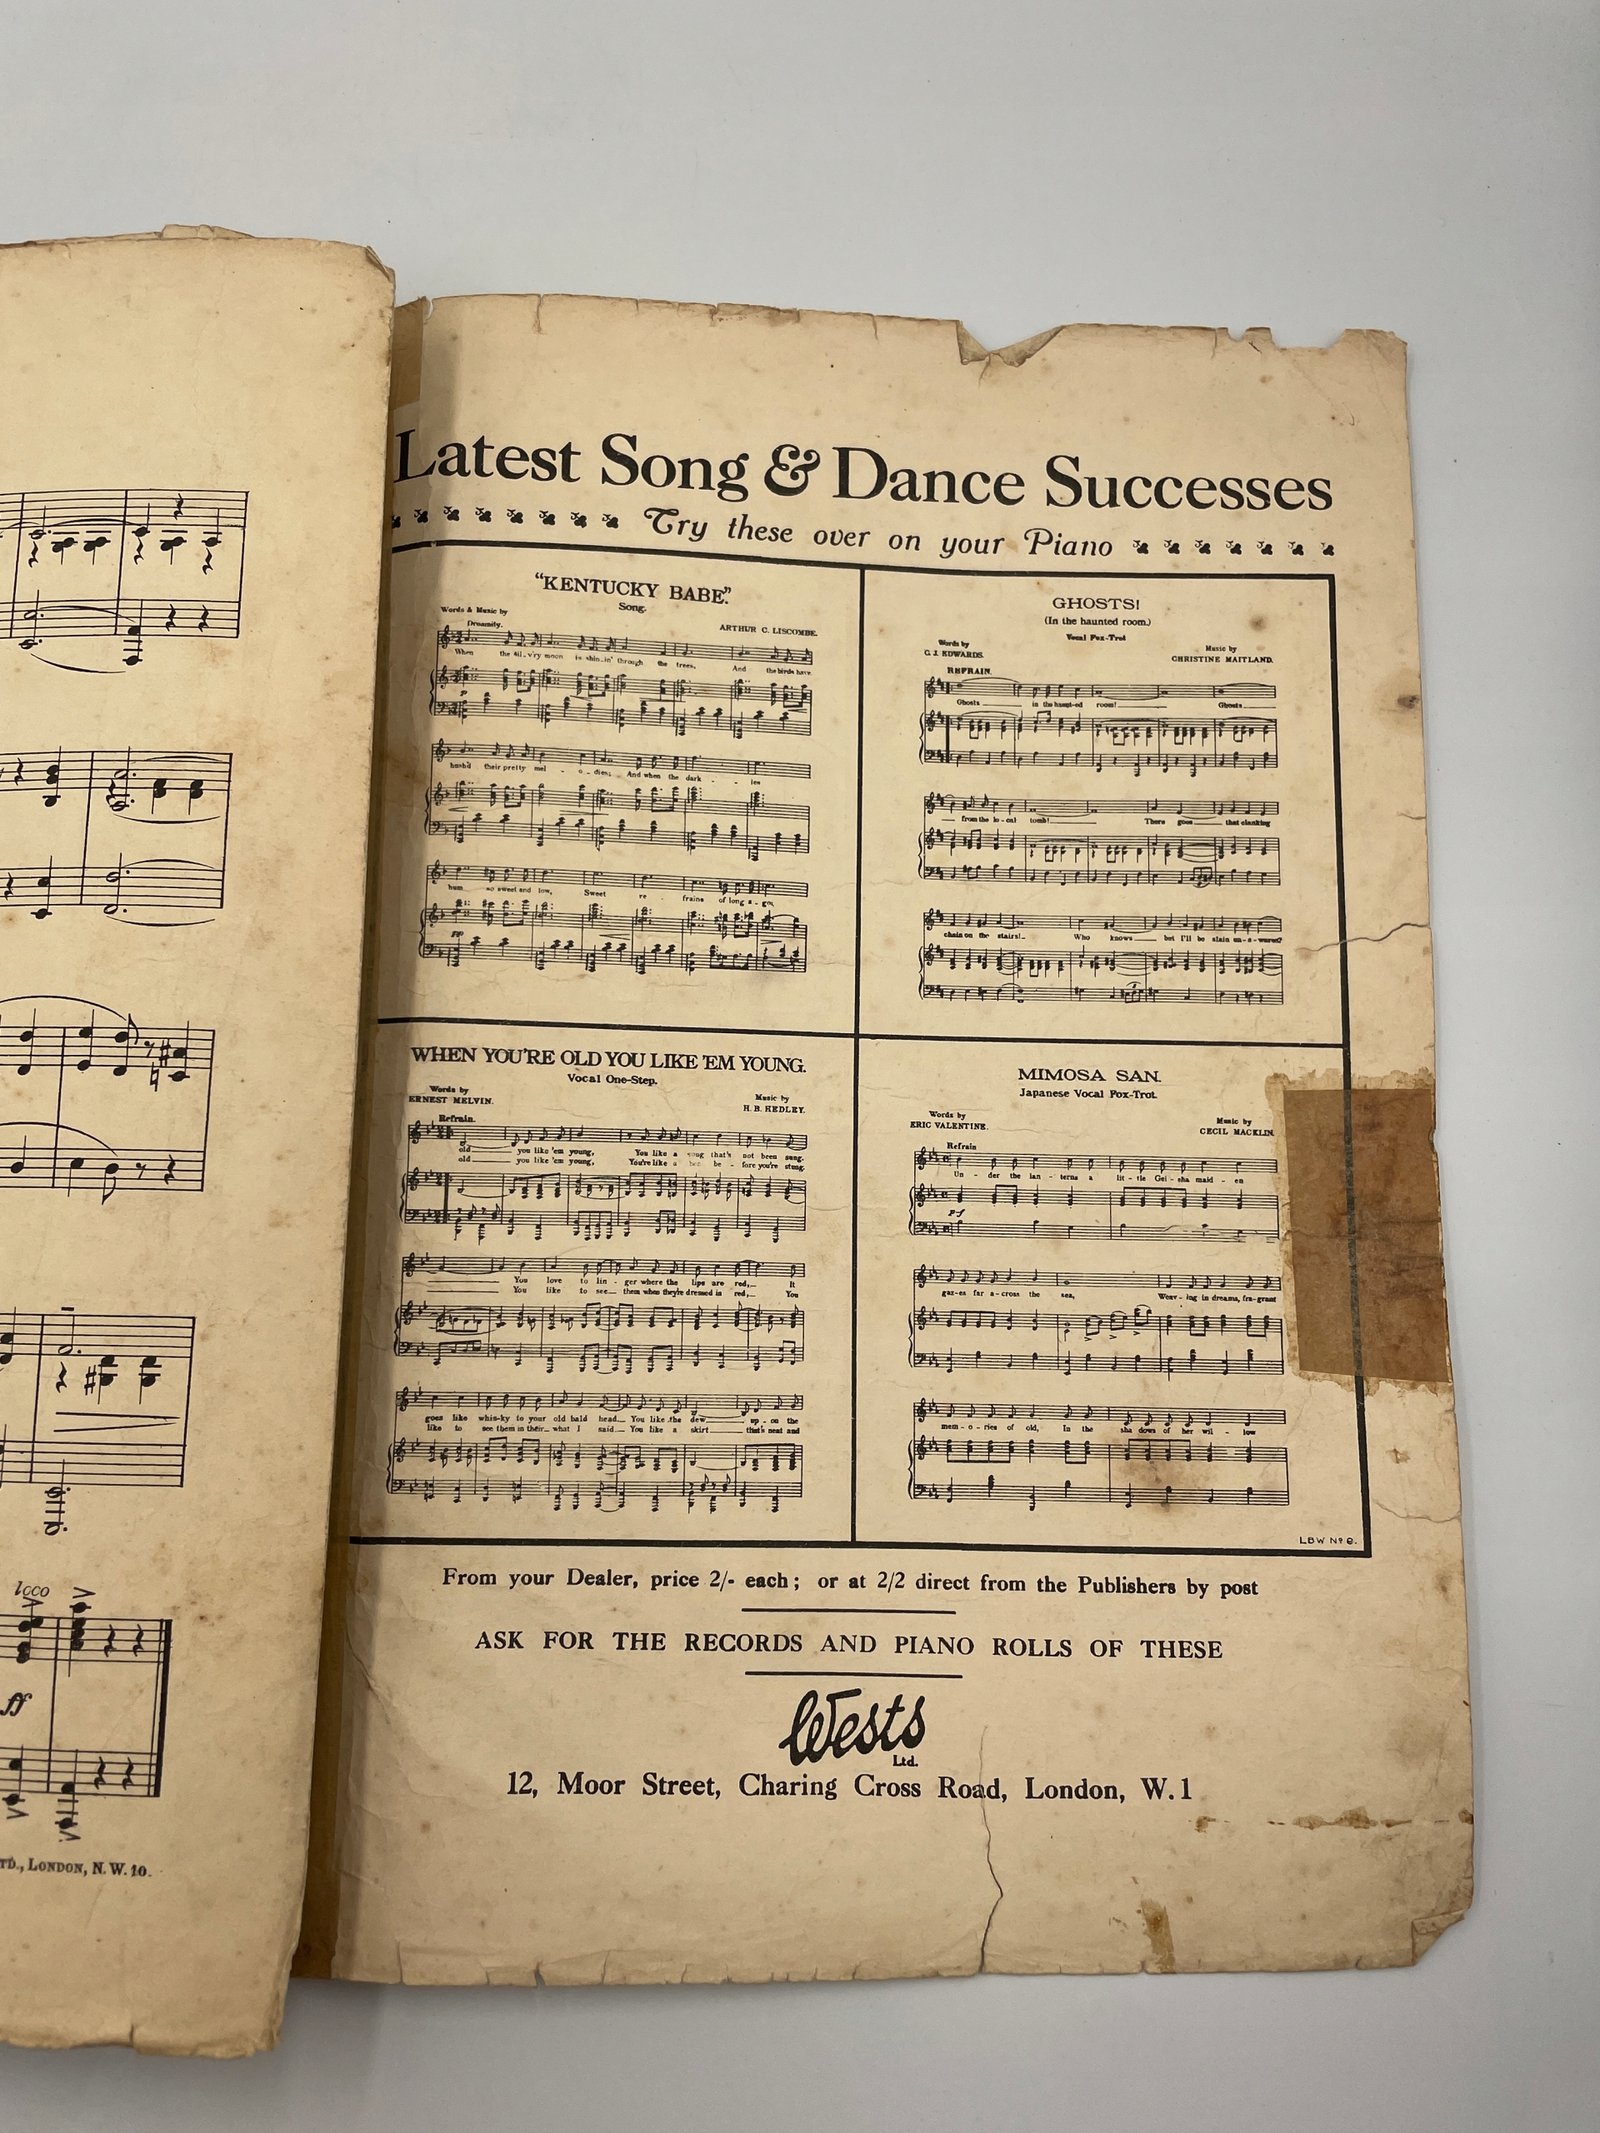 lcoo
ff
TD., LONDON, N. W. 10.
Latest Song & Dance Successes
Try these over on your Piano
"KENTUCKY BABE"."
Song.
Words & Music by
ARTHUR C. LISCOMBE.
Dreamily.
When the sil - v'ry moon is shin - in' through the trees, And the birds have
p
hush'd their pretty mel - o - dies; And when the dark - ies
hum so sweet and low, Sweet re - frains of long a - go,
pp
GHOSTS!
(In the haunted room.)
Vocal Fox-Trot
Words by
C. J. EDWARDS.
Music by
CHRISTINE MAITLAND.
REFRAIN.
Ghosts in the haunt-ed room! Ghosts
from the lo - cal tomb! There goes that clanking
chain on the stairs! Who knows but I'll be slain un - a - wares?
WHEN YOU'RE OLD YOU LIKE 'EM YOUNG.
Vocal One-Step.
Words by
ERNEST MELVIN.
Music by
H. B. HEDLEY.
Refrain.
old you like 'em young, You like a song that's not been sung.
old you like 'em young, You're like a bee be - fore you're stung.
You love to lin - ger where the lips are red, It
You like to see them when they're dressed in red, You
goes like whis-ky to your old bald head You like the dew up - on the
like to see them in their what I said You like a skirt that's neat and
MIMOSA SAN.
Japanese Vocal Fox-Trot.
Words by
ERIC VALENTINE.
Music by
CECIL MACKLIN.
Refrain
Un - der the lan - terns a lit - tle Gei - sha maid - en
p-f
gaz-es far a-cross the sea, Weav - ing in dreams, fra-grant
mem - o - ries of old, In the sha dows of her wil - low
LBW No 9.
From your Dealer, price 2/- each; or at 2/2 direct from the Publishers by post
ASK FOR THE RECORDS AND PIANO ROLLS OF THESE
Wests
Ltd.
12, Moor Street, Charing Cross Road, London, W. 1